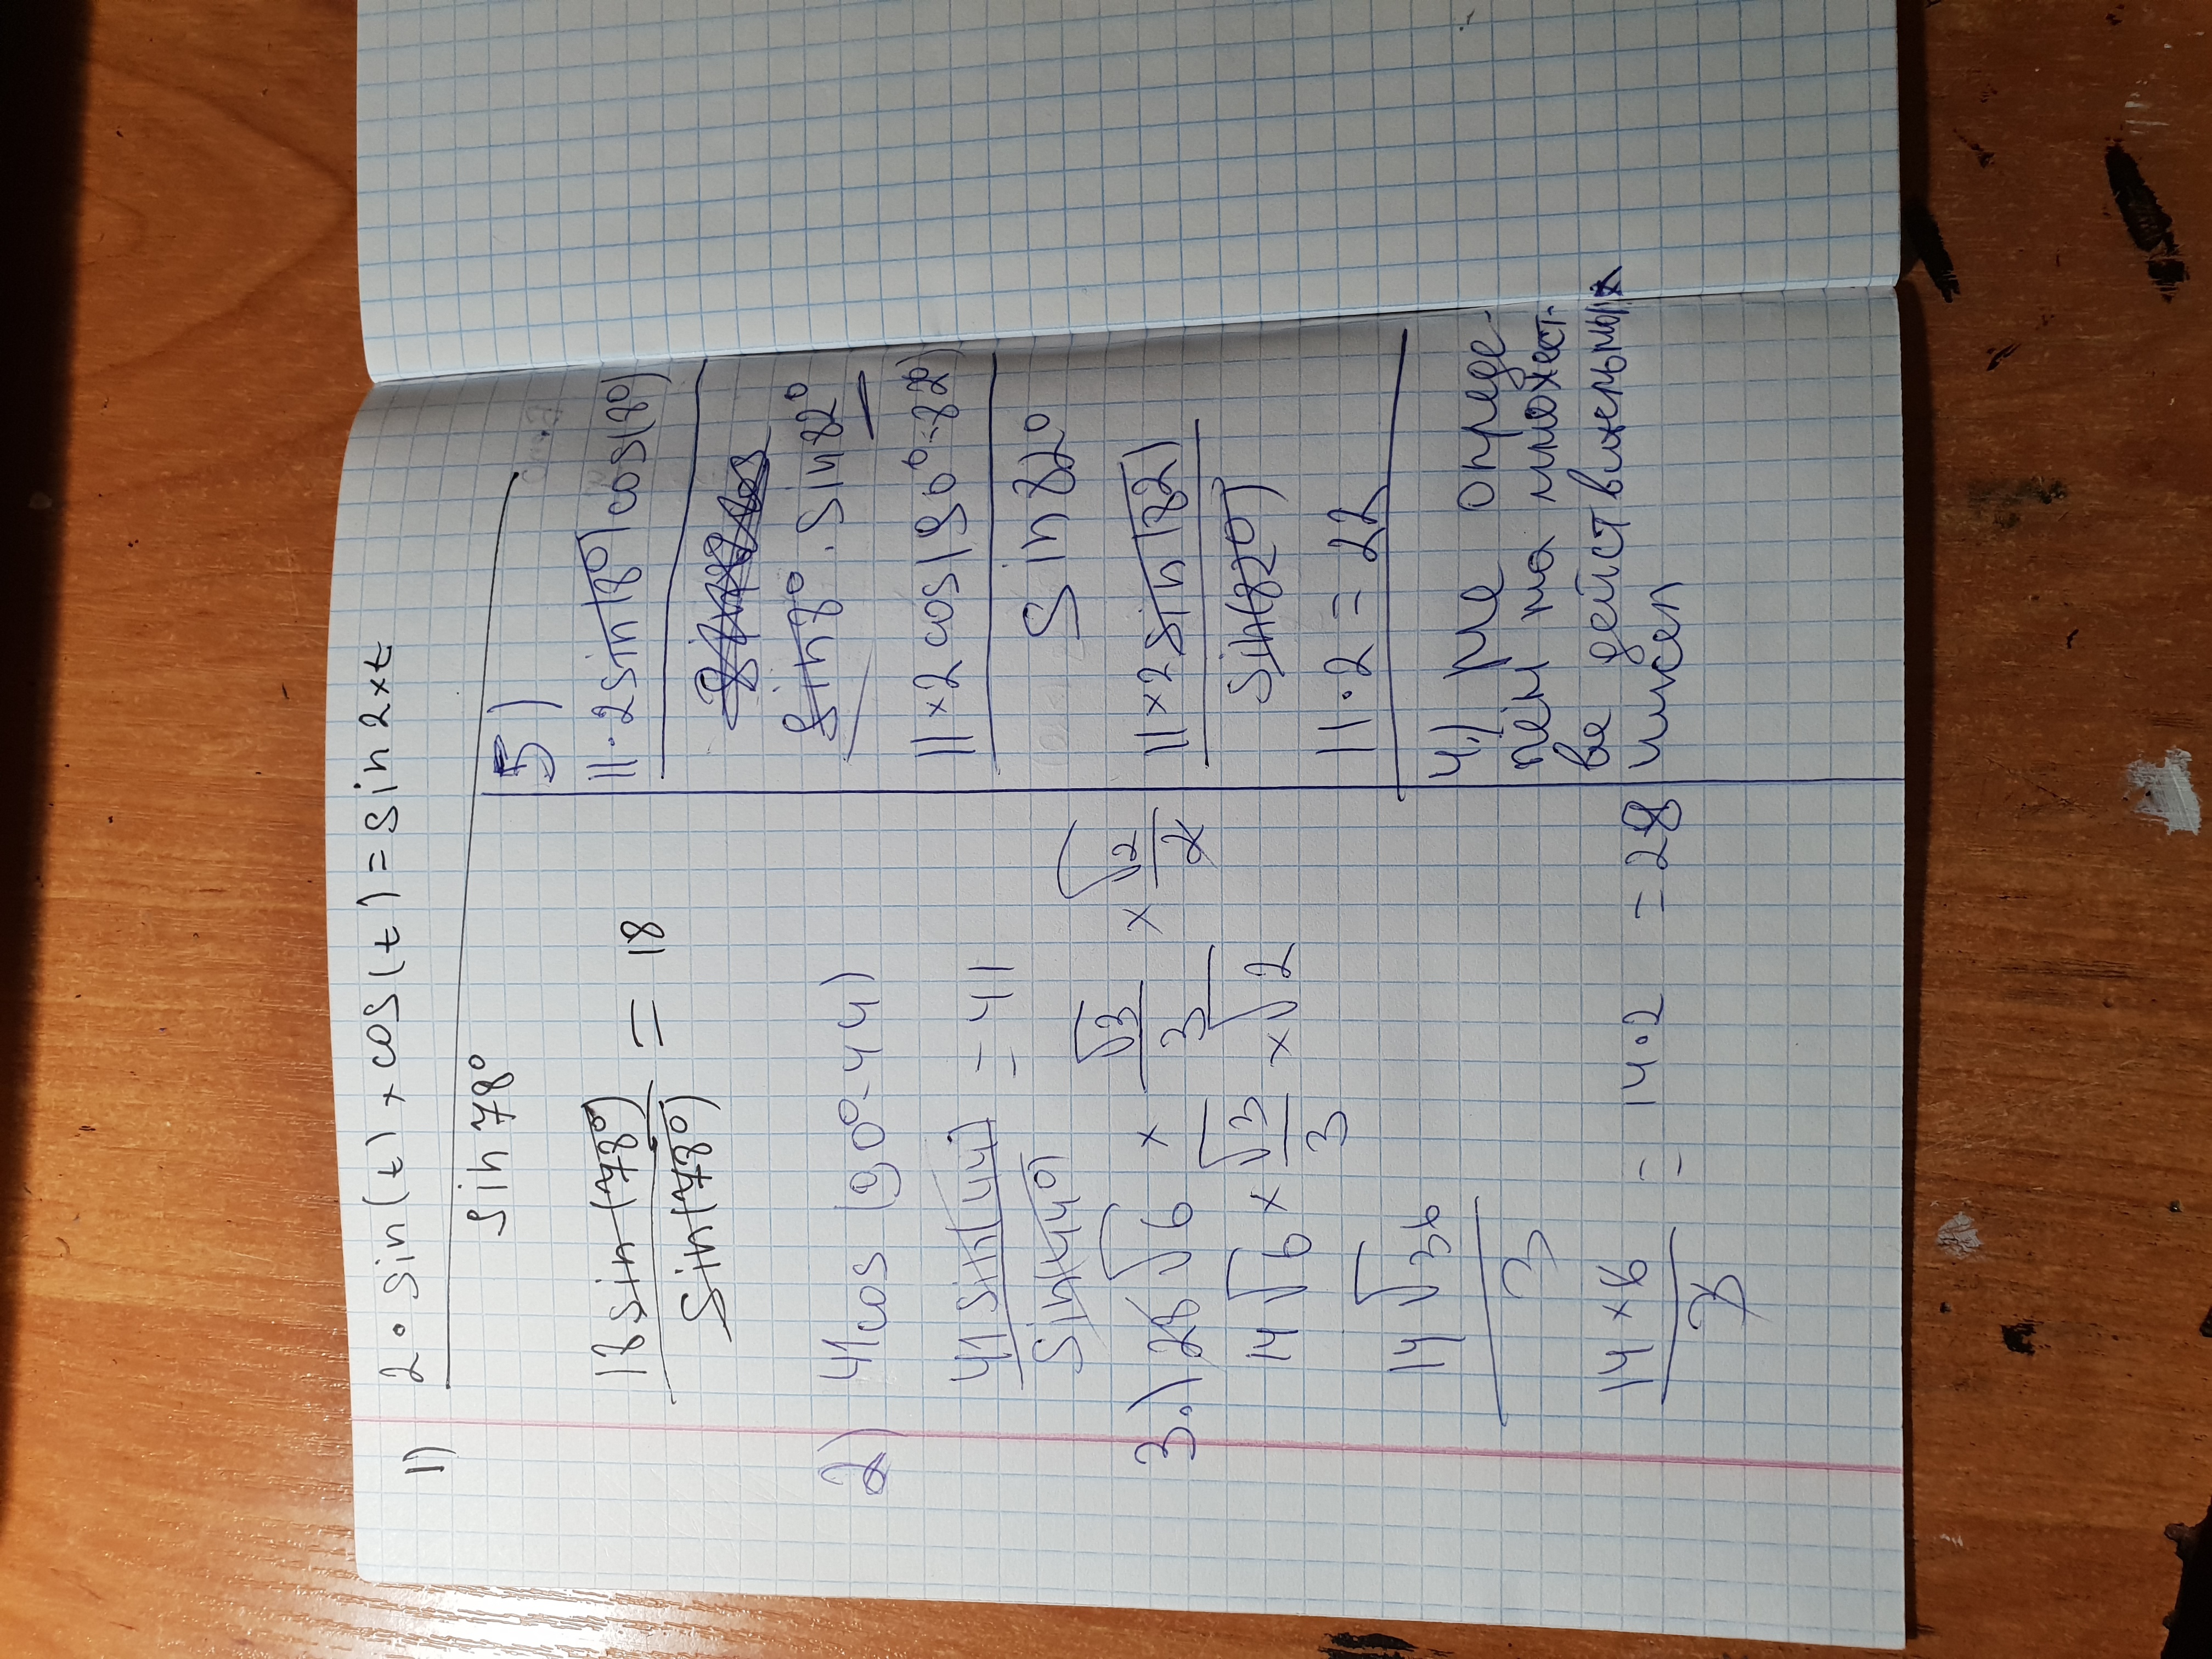 1) 2·sin(t)×cos(t)=sin2×t
sin78°
18sin(78°) = 18
sin(78°)
2) 41cos(90°-44)
41sin(44) = 41
sin(44°)
3.) 28√6 × √3/3 × √2/2
14√6 × √3/3 × √2
14√36
3
14×6 = 14·2 = 28
3
5)
11·2sin(8°)cos(8°)
sin8°·sin82°
11×2cos(90°-82°)
sin82°
11×2sin(82)
sin(82°)
11·2=22
4.) не опреде-
лен на множест-
ве действительных
чисел